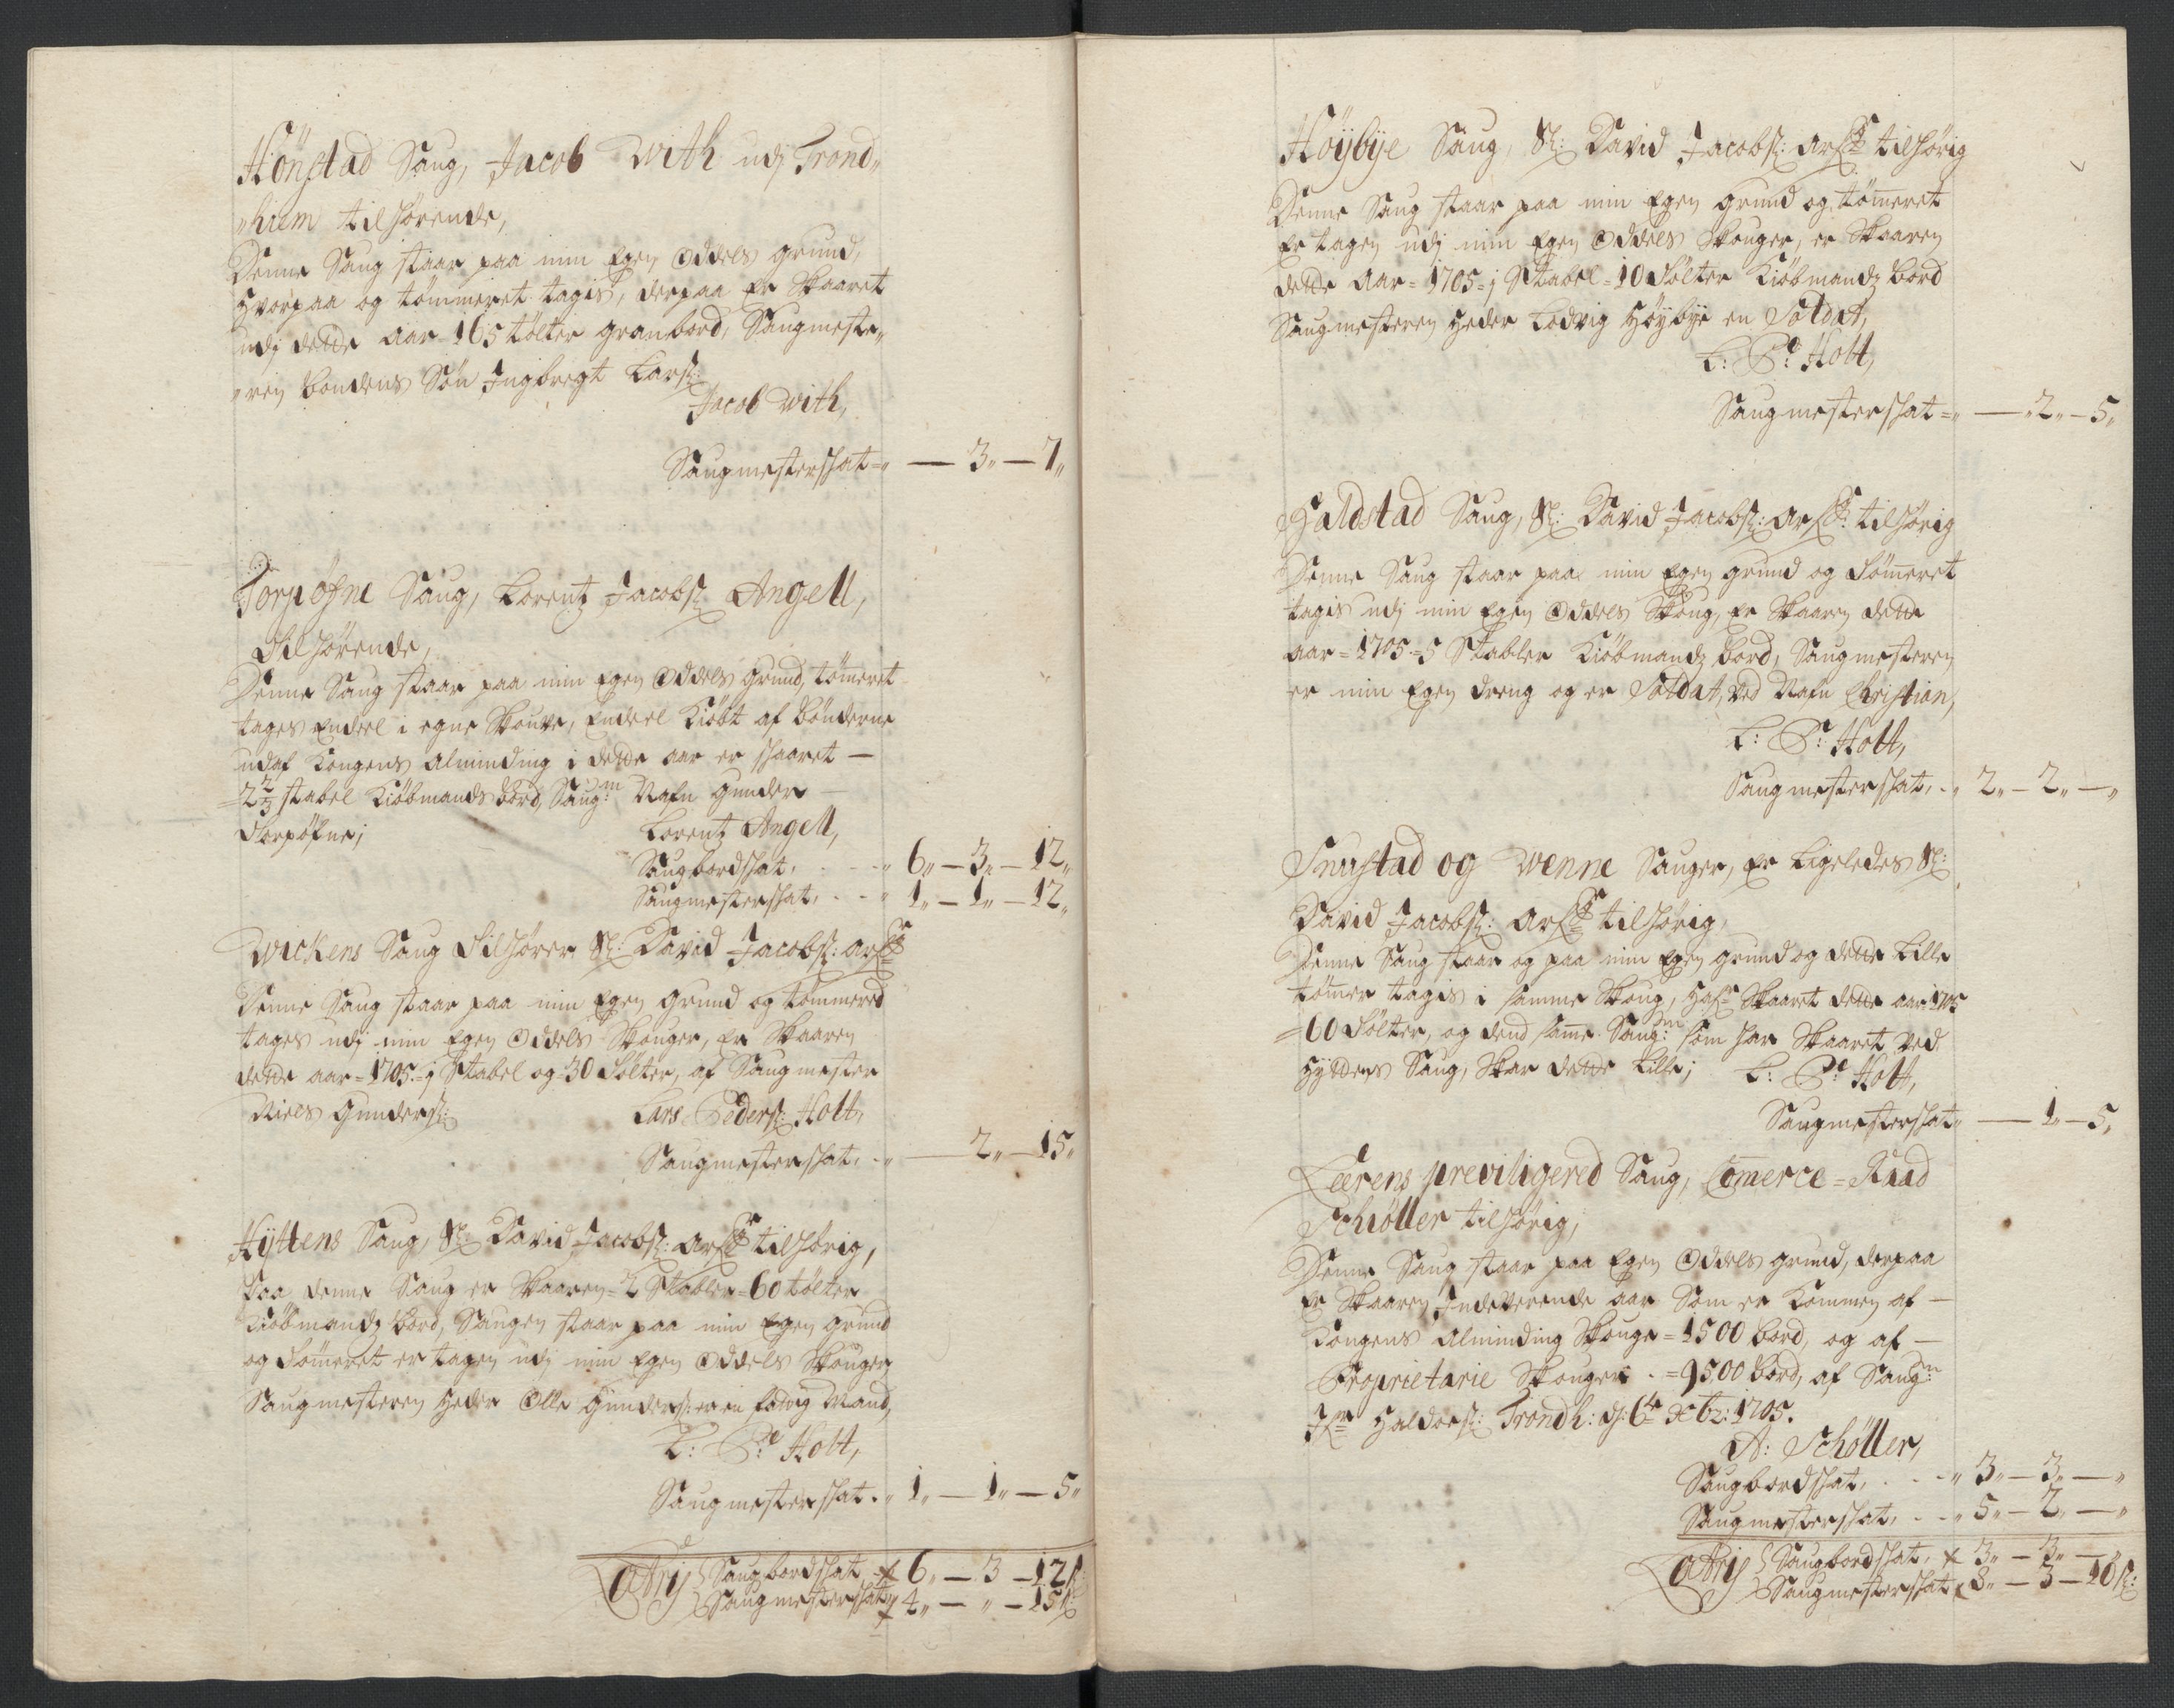 Hönstad Saug, Jacob With udj Trond„
„hiem tilhörende,
Denne Saug staar paa min Egen Oddels grund,
hvorpaa og tömmeret tagis, derpaa Er Skaaret
udj dette Aar 165 tölter granbord, Saugmeste„
„ren bondens Sön Ingbregt Larsz:
Jacob With,
Saugmesterschat =„ — 3„ — 7„
Torpöfne Saug, Lorentz Jacobsz Angell,
Tilhörende,
Denne Saug staar paa min Egen Oddels Grund, tömeret
tages Endeel i egne Skouve, Endeel Kiöbt af bönderne
udaf Kongens Alminding i dette aar er schaaret —
= 2 2/3 stabel Kiöbmands bord, Saugm: Nafn Gunder —
Torpöfne;
Lorentz Angell,
Saugbordschat, . - - „ 6„ — 3„ — 12„
Saugmesterschat, . - - „ 1„ — 1„ — 12„
Wickens Saug Tilhörer Sl: David Jacobsz: arfr:
Denne Saug staar paa min Egen Grund og tömmered
tages udj min Egen Oddels Skouger, Er Skaaren
dette aar = 1705 = j Stabel og 30 Tölter, af Saugmester
Niels Gundersz:
Lars Pedersz: Holt,
Saugmesterschat, . - „ — 2„ — 15„
Hyttens Saug, Sl: David Jacobsz: arfr: tilhörig,
Paa denne Saug er Skaaren = 2 Stabler = 60 tölter
Kiöbmandz bord, Saugen staar paa min Egen grund
og Tömeret er tagen udj min Egen Oddels Skouger,
Saugmesteren heder Olle Gundersz: er en ledig Mand,
L: Pr: Holt,
Saugmesterschat . „ 1„ — 1„ — 5„
Latris Saugbordschat 6„ — 3 — 12 s
Saugmesterschat 4„ — „ — 15 s:
Höybye Saug, Sl: David Jacobsz: arfr: tilhörig
Denne Saug staar paa min Egen grund og tömeret
Er tagen udj min Egen Oddels Skouger, er Skaaren
dette Aar = 1705 = j Stabel = 10 Tölter Kiöbmandz bord
Saugmesteren heder Lodvig Höybye en Soldat,
L: Pr: Holt,
Saugmesterschat = „ — „2„ — 5„
Haldstad Saug, Sl: David Jacobsz: arfr: tilhörig
Denne Saug staar paa min Egen grund og Tömeret
tagis udj min Egen Oddels Skoug, Er Skaaren dette
aar = 1705 = 5 Stabler Kiöbmandz bord, Saugmesteren
er min Egen dreng og er Soldat, ved Nafn Christian,
L: Pr: Holt,
Saugmesterschat, . „ 2„ — 2„ — „
Snustad og Wenne Sauger, Er Ligeledes Sl:
David Jacobsz: arfr: tilhörig,
Denne Saug staar og paa min Egen grund og dette Lille
tömer tagis i samme Skoug, hafr Skaaret dette aar 1705
= 60 Tölter, og dend same Saugm: som har Skaaret ved
Hyttens Saug, Skar dette Lille; L: Pr: Holt,
Saugmesterschat„ — 1„ — 5„
Leerens previligered Saug, Comerce = Raad
Schiöller tilhörig;
Denne Saug staar paa Egen Oddels grund, derpaa
Er Skaaren Indeverende aar Som er Kommen af —
Kongens Alminding Skouge = 1500 bord, og af —
Proprietarie Skouger . = 9500 bord, af Saugm:
Haldorsz: Trondh: d: 6te Xbr: 1705.
A: Schöller,
Saugbordschat, . - - „ 3„ — 3„ — „
Saugmesterschat, . - - „ 5„ — 2„ — „
Latris Saugbordschat, 3„ — 3„ — „
Saugmesterschat 8„ — 3 — 10 s: